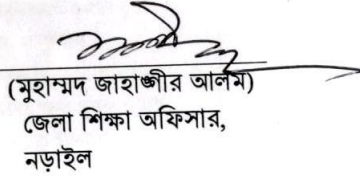 (মুহাম্মদ জাহাঙ্গীর আলম)
জেলা শিক্ষা অফিসার,
নড়াইল